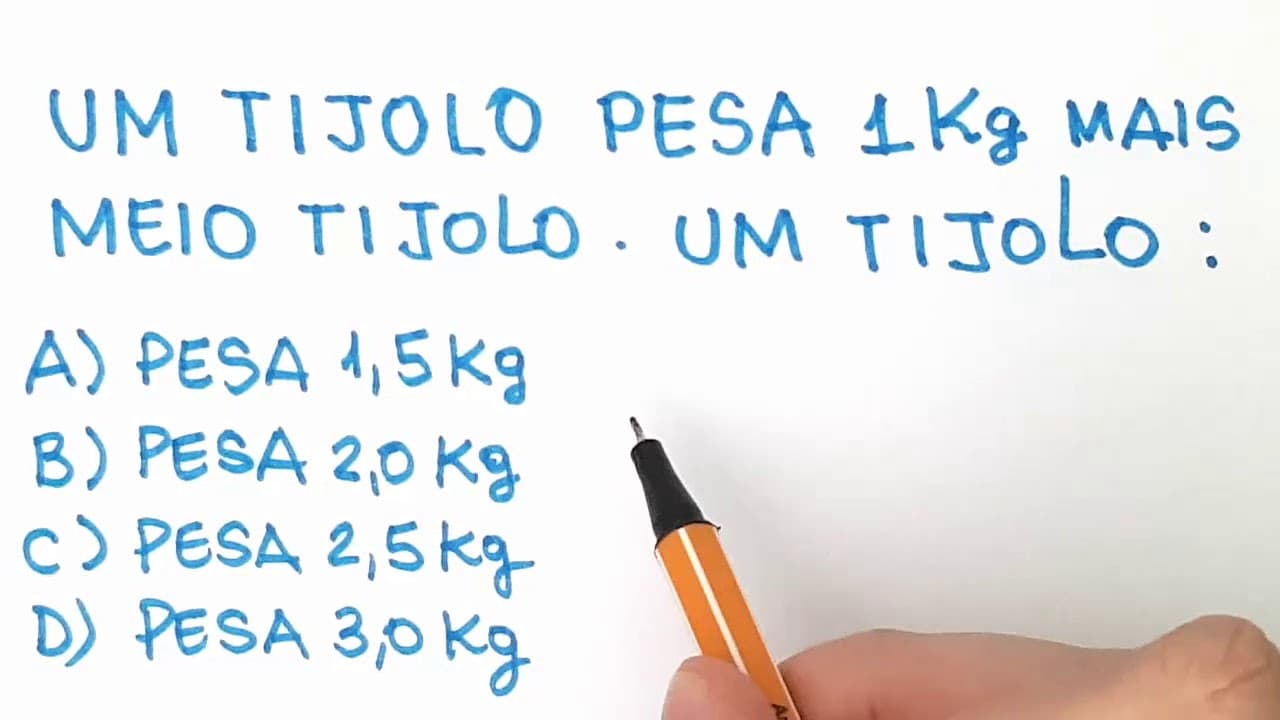 UM TIJOLO PESA 1Kg MAIS
MEIO TIJOLO. UM TIJOLO:
A) PESA 1,5Kg
B) PESA 2,0Kg
C) PESA 2,5Kg
D) PESA 3,0Kg